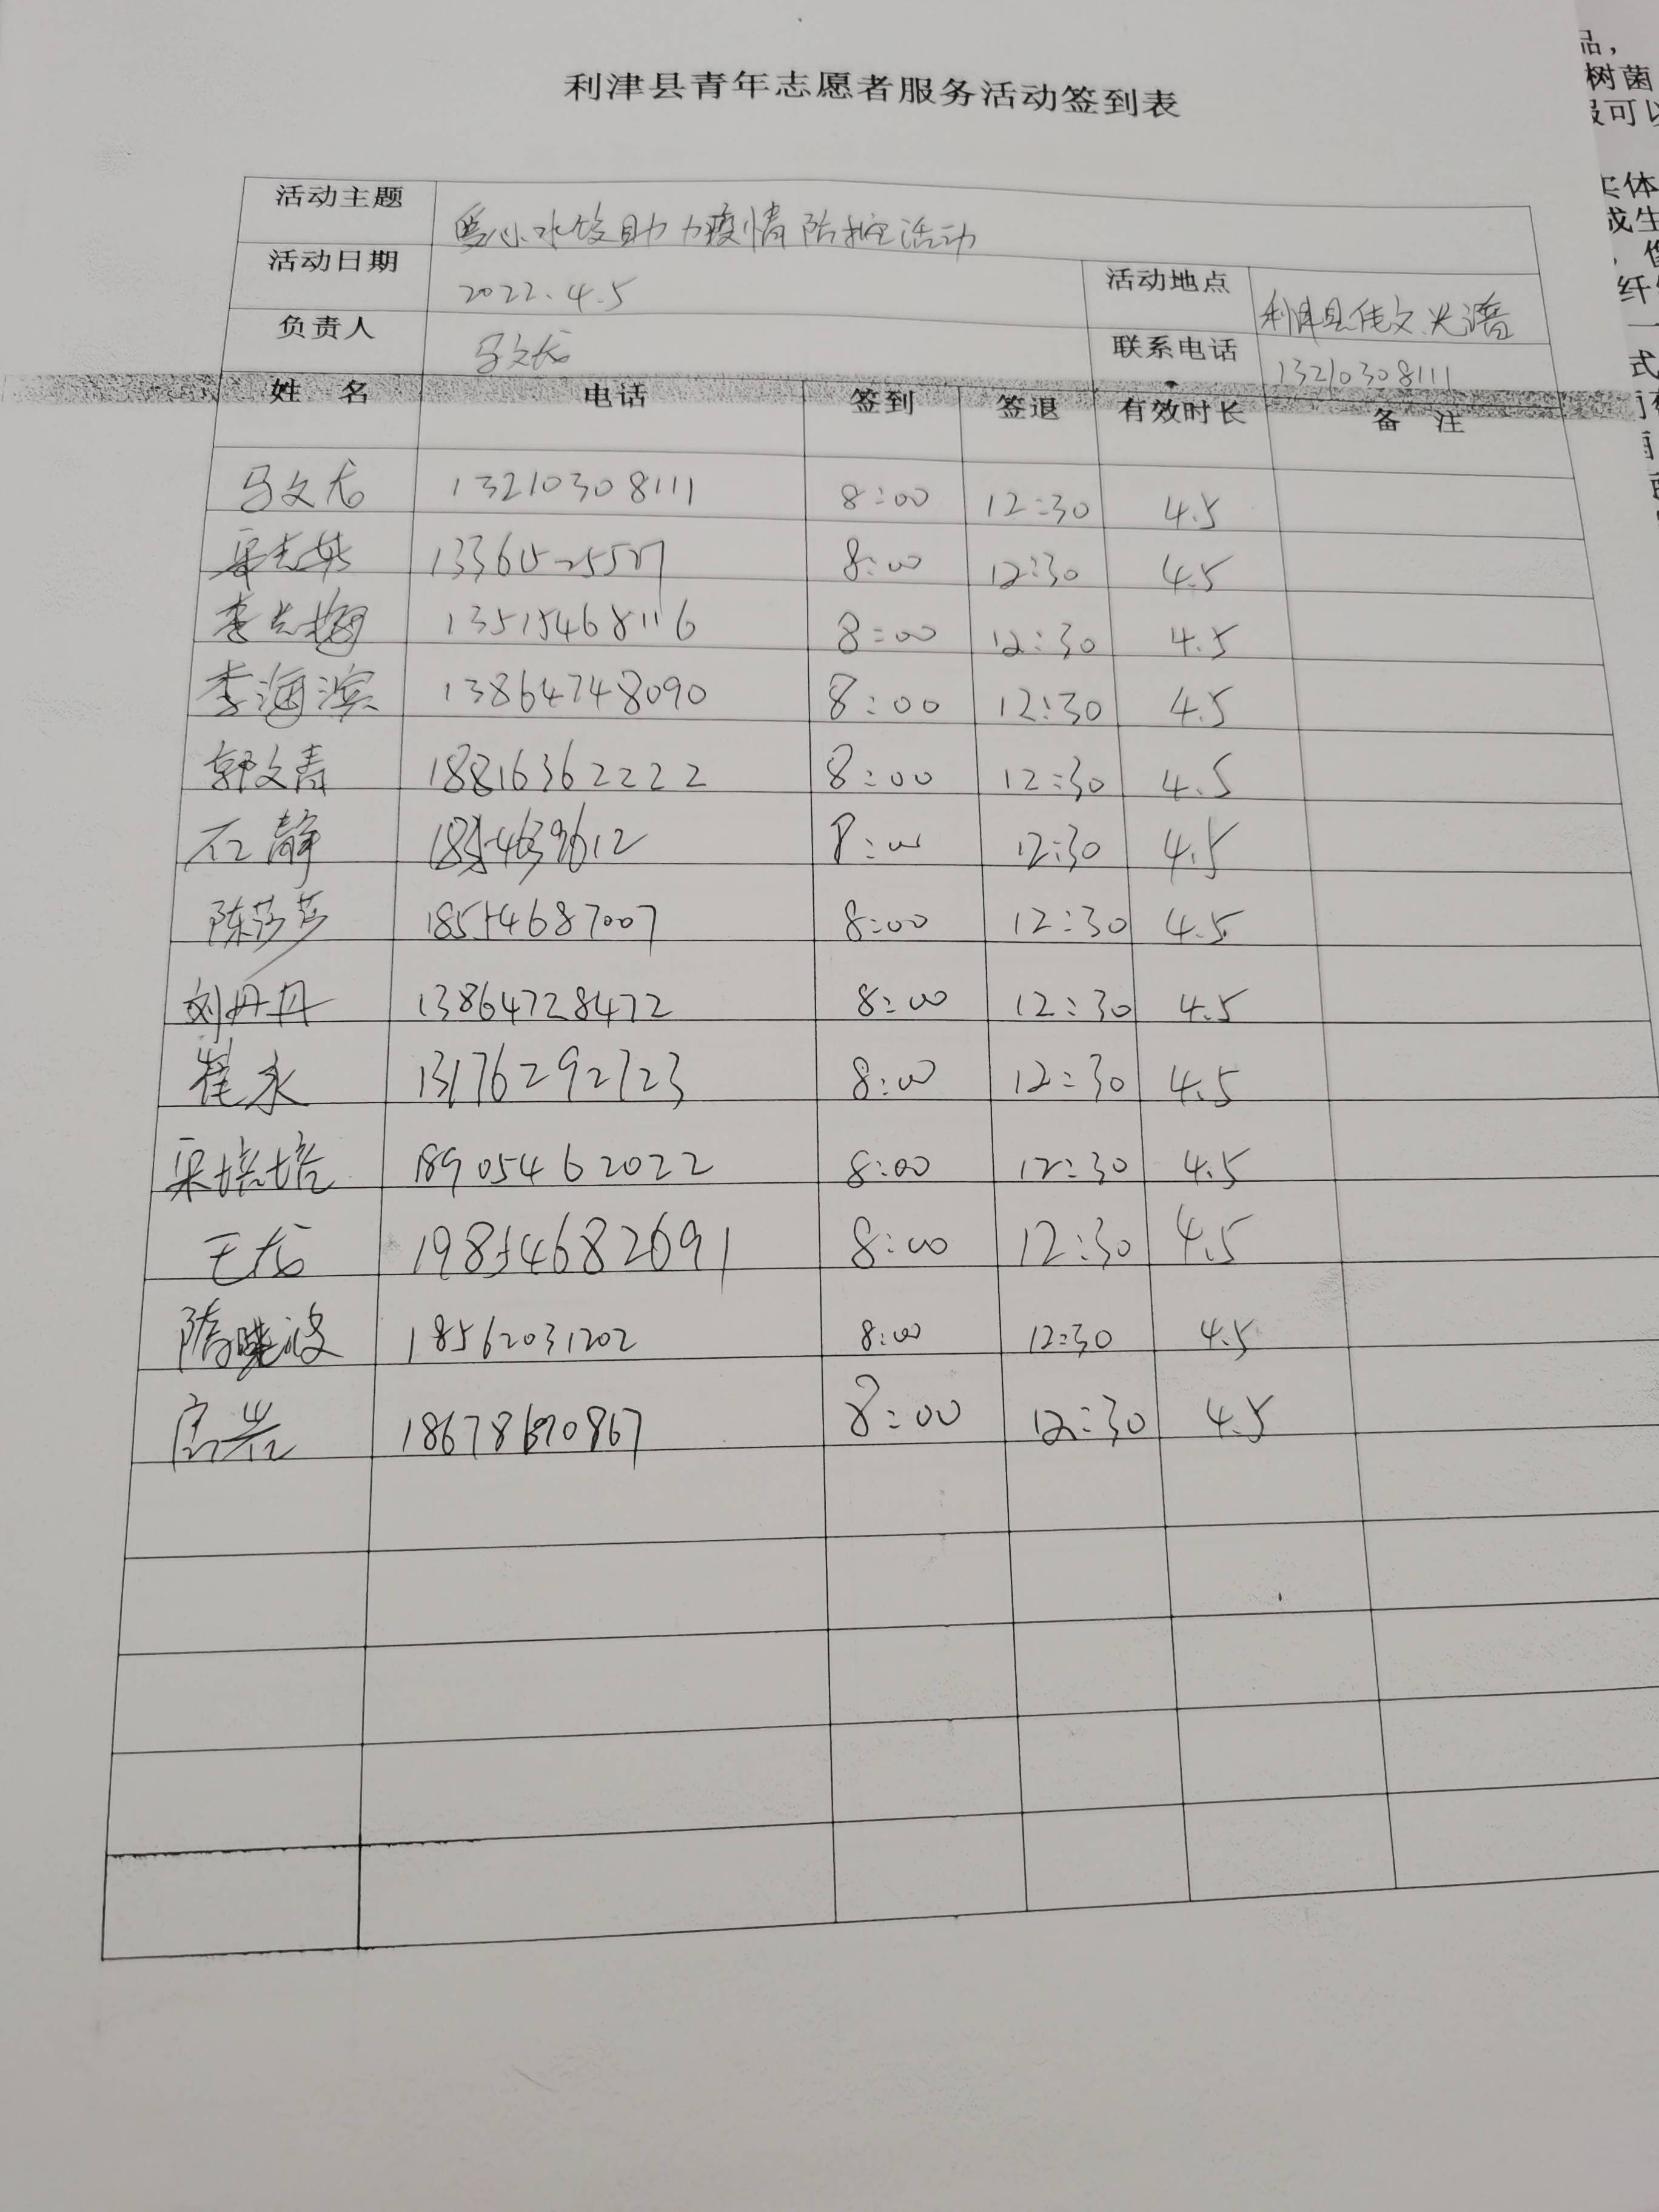 利津县青年志愿者服务活动签到表
活动主题 爱心水饺助力疫情防控活动
活动日期 2022.4.5 活动地点 利津县
负责人 马文龙 联系电话 13210308111
姓 名 电话 签到 签退 有效时长 备 注
马文龙 13210308111 8:00 12:30 4.5
8:00 12:30 4.5
李志梅 13515468116 8:00 12:30 4.5
李海滨 13864748090 8:00 12:30 4.5
郭文青 18816362222 8:00 12:30 4.5
石静 8:00 12:30 4.5
陈莎莎 18554687007 8:00 12:30 4.5
刘丹丹 13864728472 8:00 12:30 4.5
崔永 13176292723 8:00 12:30 4.5
宋培培 18905462022 8:00 12:30 4.5
王龙 19854682691 8:00 12:30 4.5
隋晓波 18562031202 8:00 12:30 4.5
8:00 12:30 4.5
品，
树菌
可以
体
成生
纤
一
式